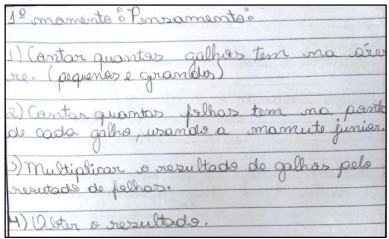 1º momento: Pensamento:
1) Contar quantos galhos tem na árvo
re. (pequenos e grandes)
2) Contar quantas folhas tem na ponta
de cada galho, usando a mamute junior.
3) Multiplicar o resultado de galhos pelo
resutado de folhas.
4) Obter o resultado.